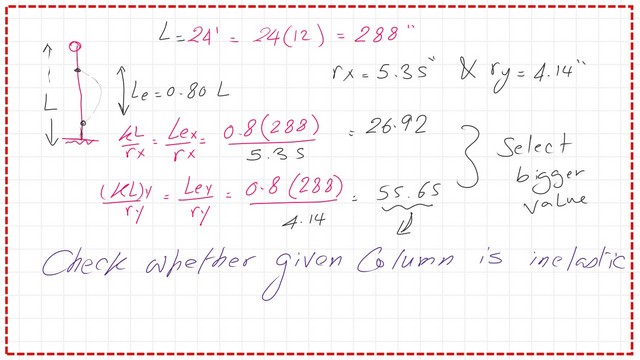 L = 24' = 24(12) = 288"
rx = 5.35" & ry = 4.14"
L
Le = 0.80 L
KL/rx = Lex/rx = 0.8(288)/5.35 = 26.92
(KL)y/ry = Ley/ry = 0.8(288)/4.14 = 55.65
Select
bigger
value
Check whether given Column is inelastic